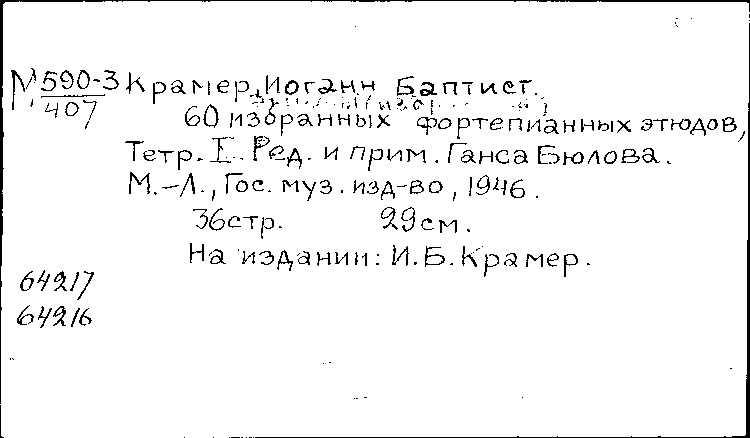 М 590-3 Крамер, Иоганн Баптист.
407
60 избранных фортепианных этюдов,
Тетр. I. Ред. и прим. Ганса Бюлова.
М.-Л., Гос. муз. изд-во, 1946.
36стр. 29см.
На издании: И.Б.Крамер.
64217
64216